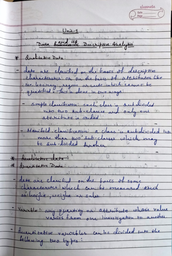 Unit-3
Data and its Descriptive Analysis
Qualitative Data
- data are classified on the basis of descriptive
characteristics or on the basis of attributes like
region which cannot be
quantified
- Simple classification each class is subdivided
into two sub-classes and only one
attribute is studied
- Manifold classification a class is subdivided into
more than two sub-classes which may
be sub divided further
Quantitative Data
- data are classified on the basis of some
characteristics which can be measured such
as height, weight
- Variable: any quantity or attribute whose value
varies from one investigation to another
- Quantitative variables can be divided into the
following two types